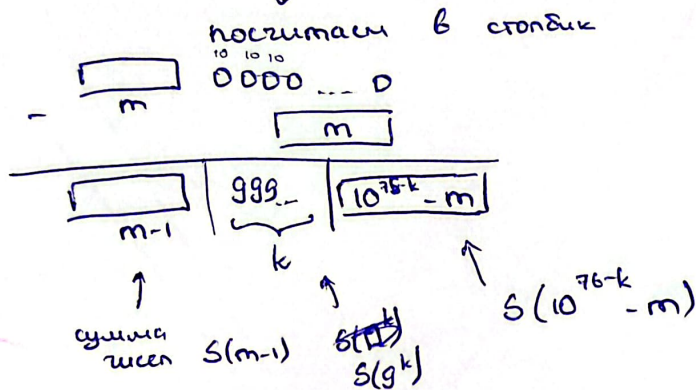 посчитаем в столбик
10 10 10
m 0000 ... 0
- m
m-1 999.. 10^76-k - m
k
сумма чисел S(m-1) S(9^k) S(10^76-k - m)